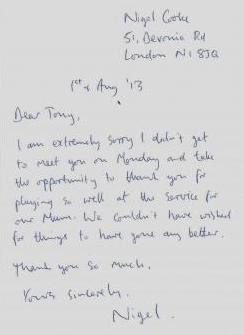 Nigel Cooke
51, Devonia Rd
London N1 8JQ
1st Aug '13
Dear Tony,
I am extremely sorry I didn't get
to meet you on Monday and take
the opportunity to thank you for
playing so well at the service for
our Mum. We couldn't have wished
for things to have gone any better.
Thank you so much.
Yours sincerely.
Nigel.